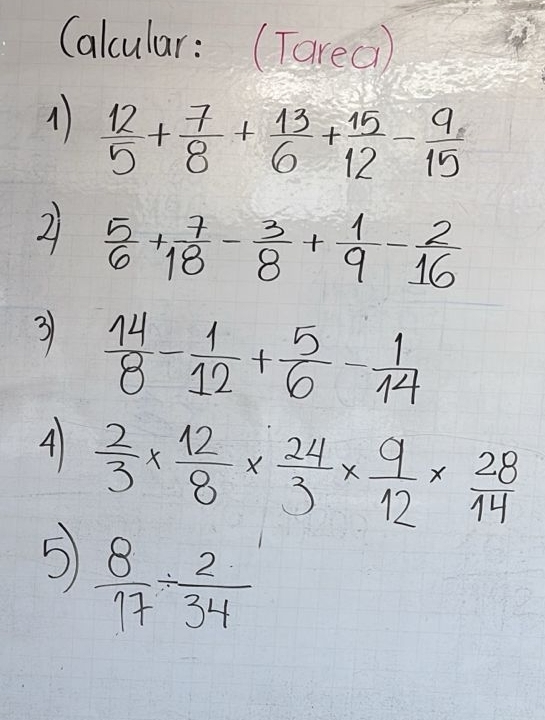 Calcular: (Tarea)
1) 12/5 + 7/8 + 13/6 + 15/12 - 9/15
2) 5/6 + 7/18 - 3/8 + 1/9 - 2/16
3) 14/8 - 1/12 + 5/6 - 1/14
4) 2/3 x 12/8 x 24/3 x 9/12 x 28/14
5) 8/17 ÷ 2/34